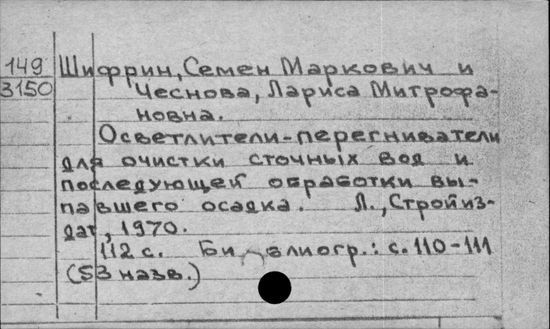 149 Шифрин, Семен Маркович и
3150 Чеснова, Лариса Митрофа-
новна.
Осветлители-перегниватели
для очистки сточных вод и
последующей обработки вы-
павшего осадка. Л., Стройиз-
дат, 1970.
112 с. Библиогр.: с. 110-111
(53 назв.)